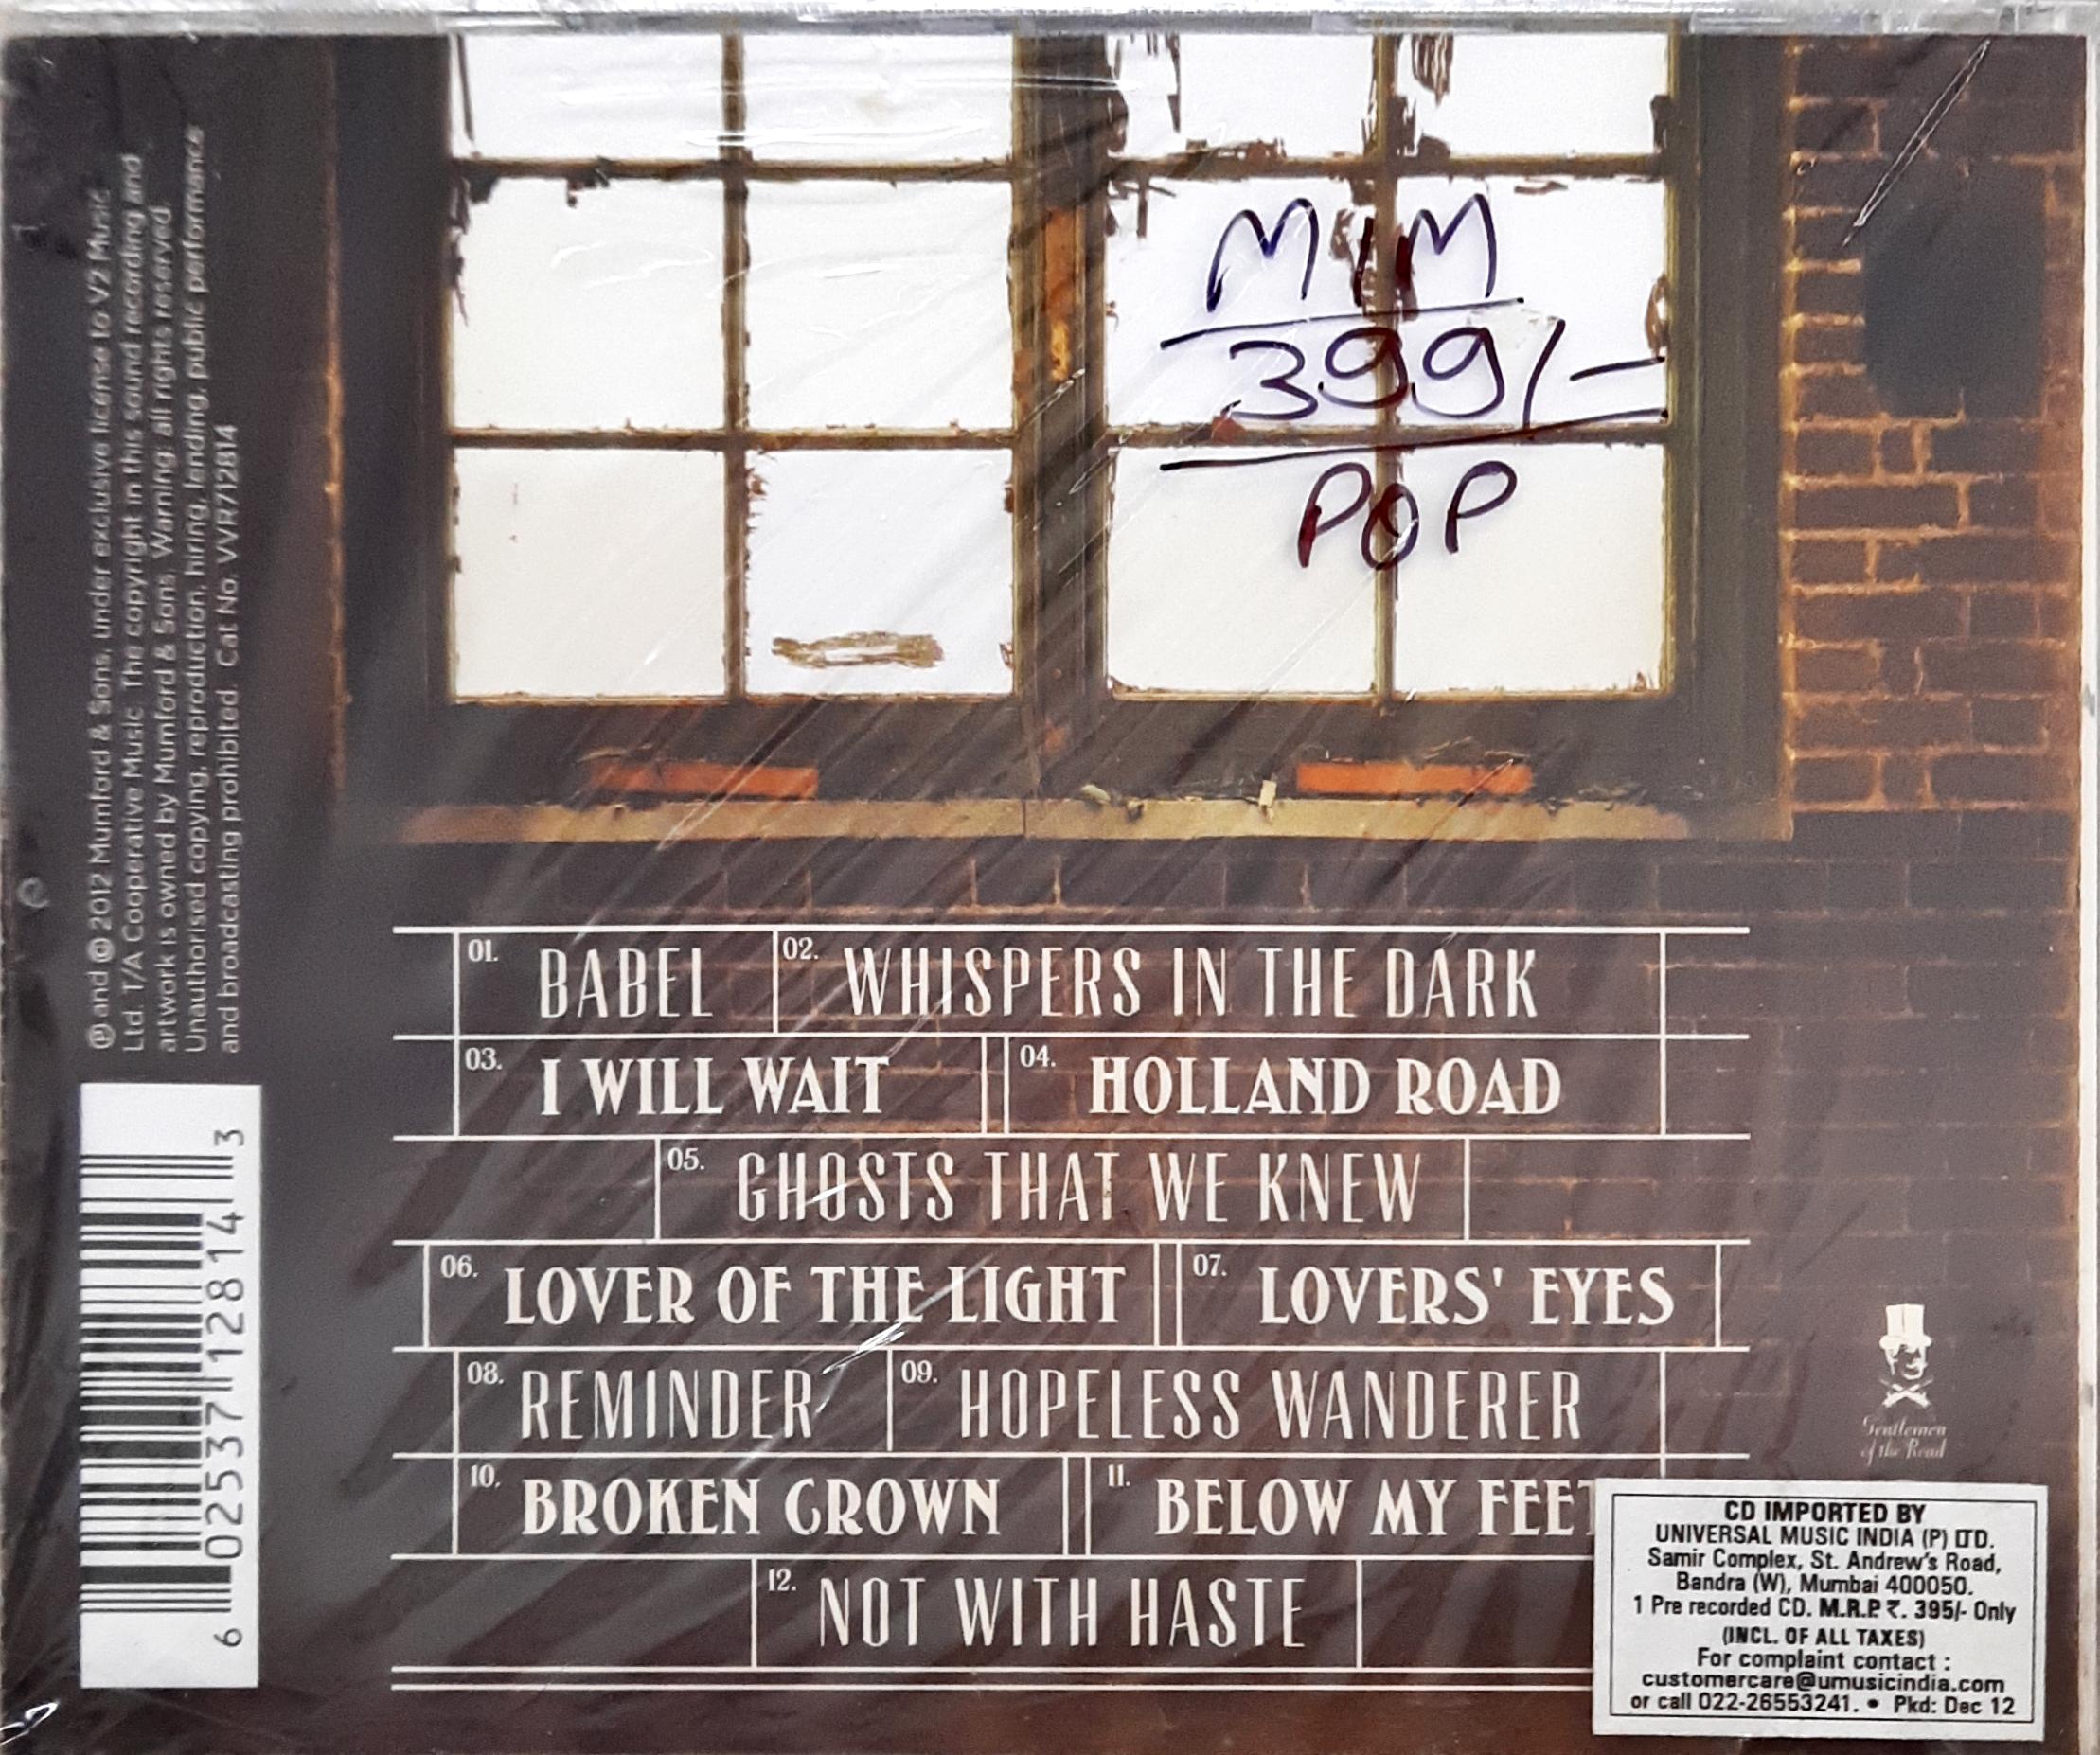 MIM
399/-
POP
℗ and © 2012 Mumford & Sons, under exclusive license to V2 Music
Ltd. T/A Cooperative Music. The copyright in this sound recording and
artwork is owned by Mumford & Sons. Warning: all rights reserved.
Unauthorised copying, reproduction, hiring, lending, public performance
and broadcasting prohibited. Cat No. VVR712814
6 02537 12814 3
01. BABEL 02. WHISPERS IN THE DARK
03. I WILL WAIT 04. HOLLAND ROAD
05. GHOSTS THAT WE KNEW
06. LOVER OF THE LIGHT 07. LOVERS' EYES
08. REMINDER 09. HOPELESS WANDERER
10. BROKEN CROWN 11. BELOW MY FEET
12. NOT WITH HASTE
Gentlemen
of the Road
CD IMPORTED BY
UNIVERSAL MUSIC INDIA (P) LTD.
Samir Complex, St. Andrew's Road,
Bandra (W), Mumbai 400050.
1 Pre recorded CD. M.R.P. ₹. 395/- Only
(INCL. OF ALL TAXES)
For complaint contact :
customercare@umusicindia.com
or call 022-26553241. • Pkd: Dec 12